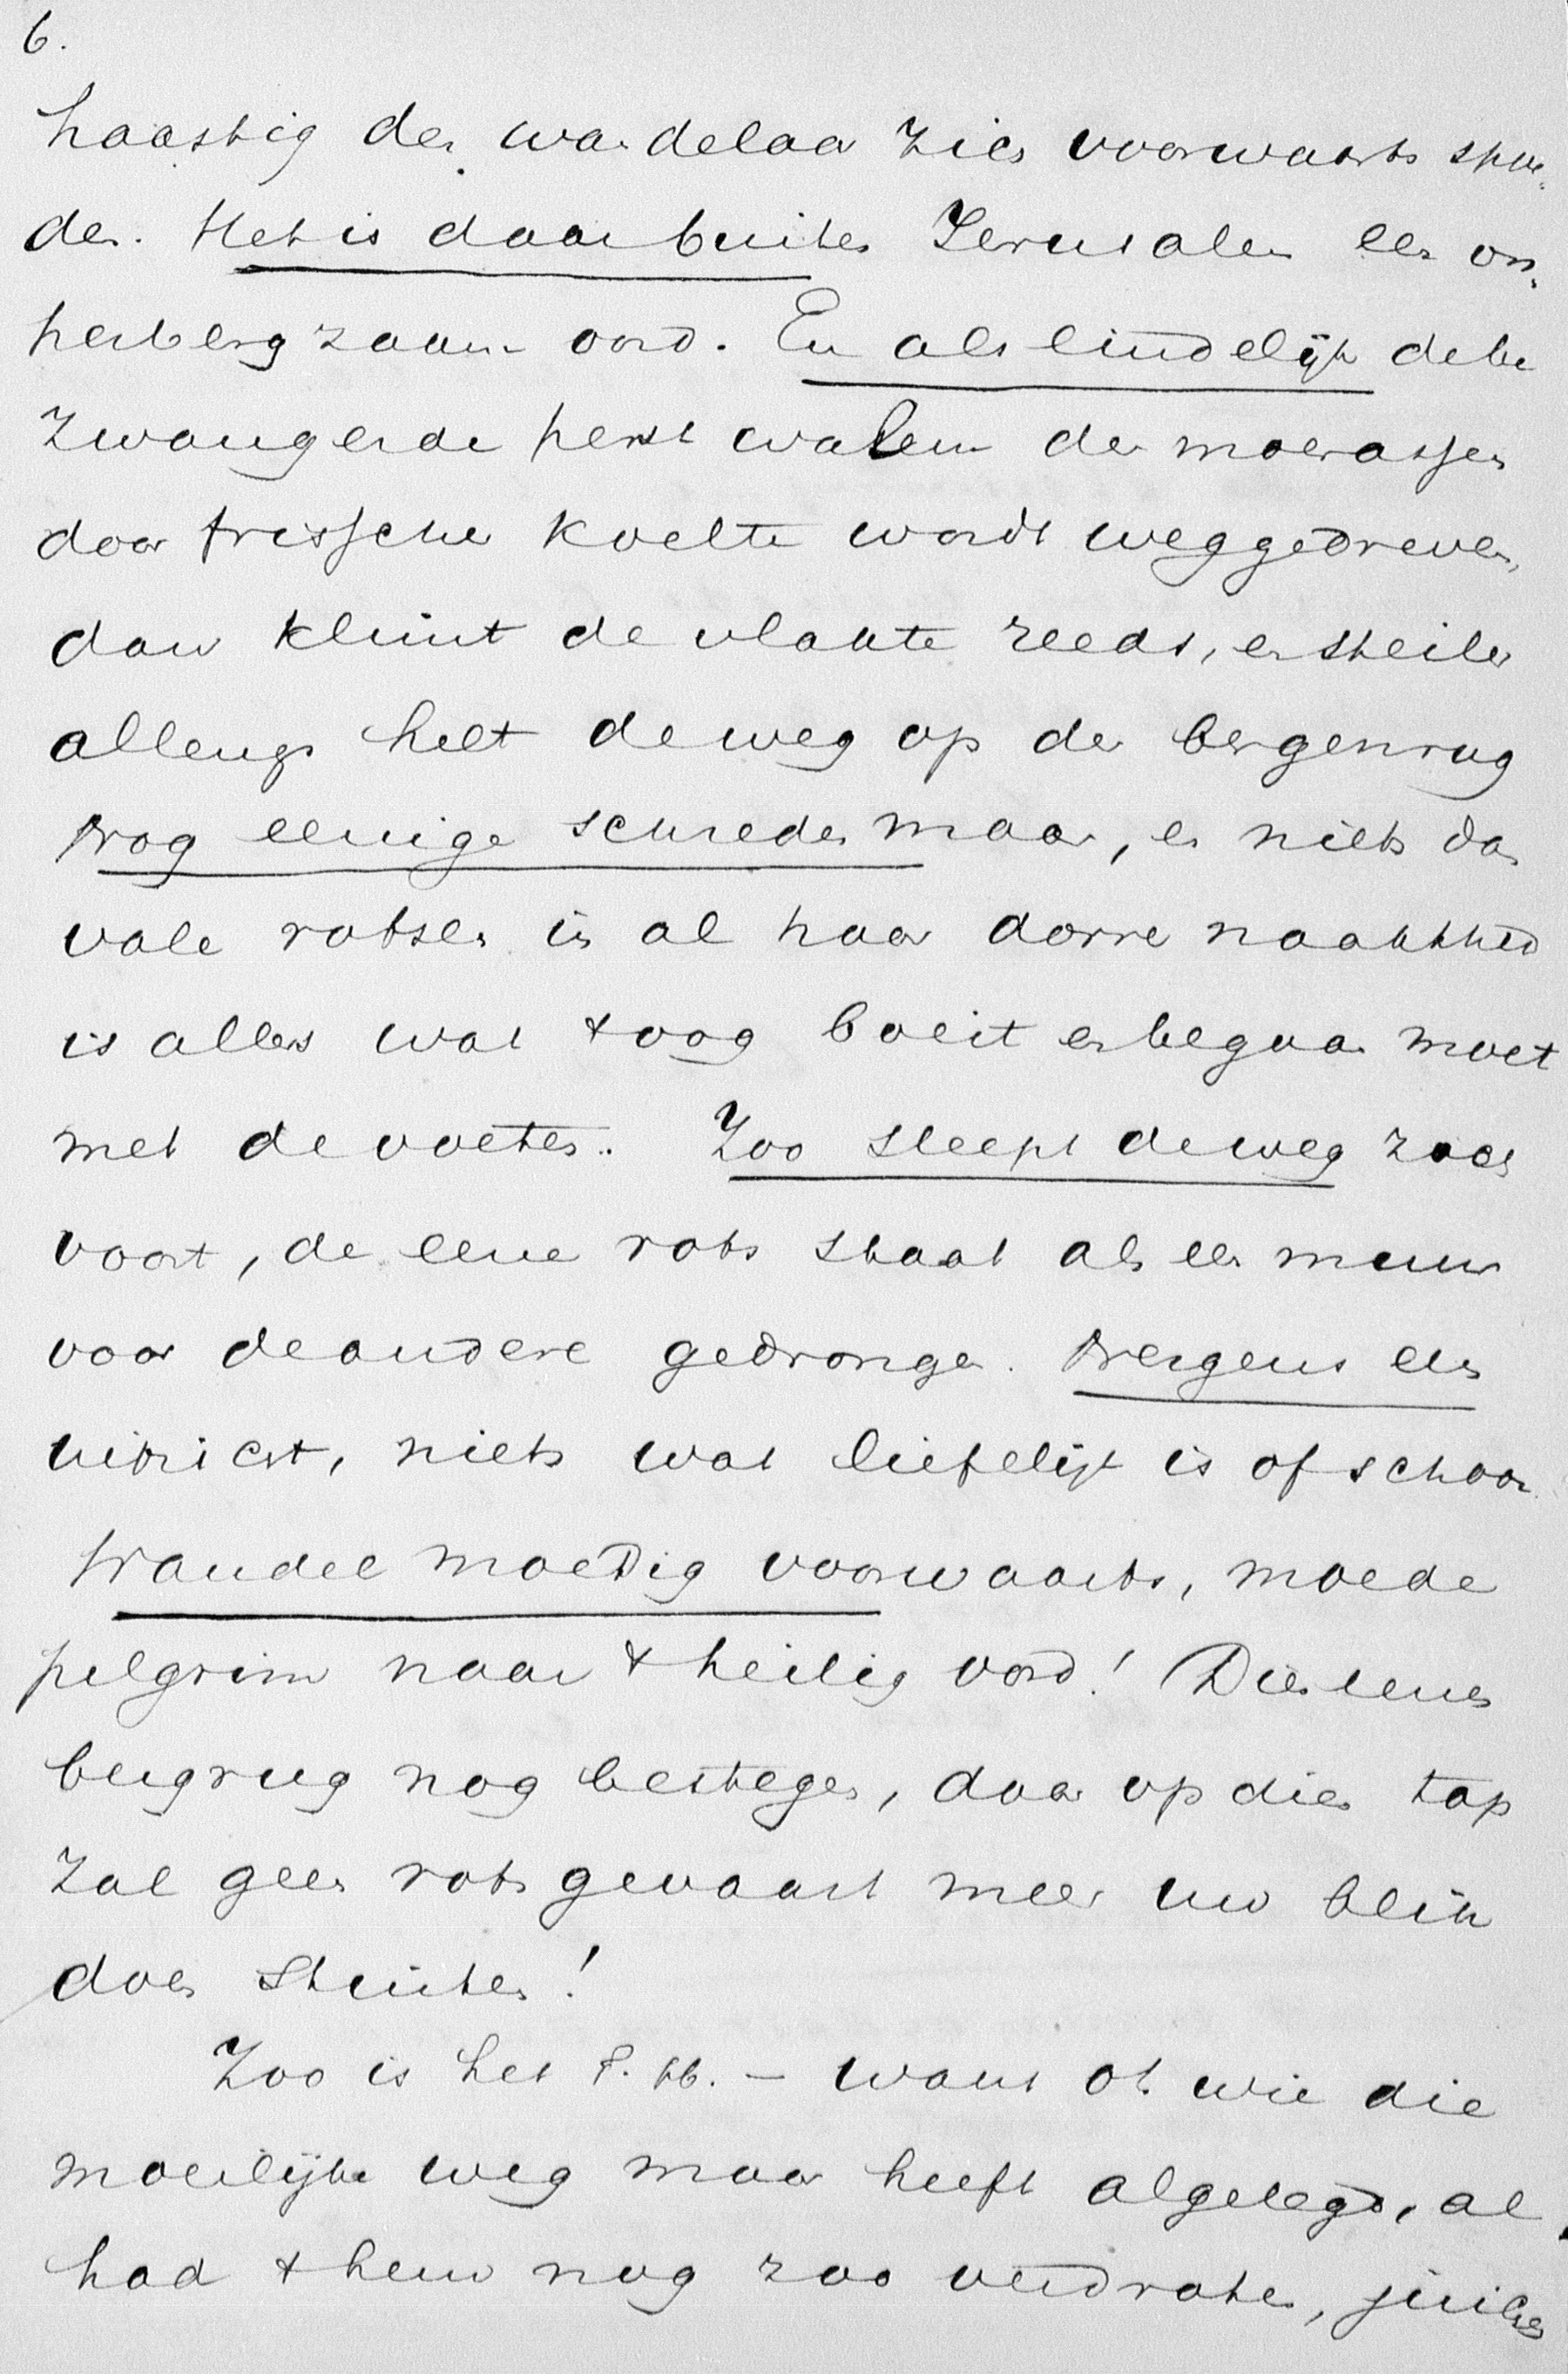 6.
haastig den wandelaar zich voorwaarts spoe-
den. Het is daar buiten Jerusalem een on-
herbergzaam oord. En als eindelijk de be
zwangerde pestwalm der moerassen
door frissche koelte wordt weggedreven,
dan klimt de vlakte reeds, en steiler
allengs helt de weg op den bergenrug
Nog eenige schreden maar, en niets dan
vale rotsen in al haar dorre naaktheid
is alles wat t oog boeit en begaan moet
met de voeten. Zoo sleept de weg zich
voort, de eene rots staat als een muur
voor de andere gedrongen. Nergens een
uitzicht, niets wat liefelijk is of schoon.
Wandel moedig voorwaarts, moede
pelgrim naar t heilig oord! Dien eenen
bergrug nog bestegen, daar op dien top
zal geen rotsgevaart meer uw blik
doen stuiten!
Zoo is het - want o! wie die
moeilijke weg maar heeft afgelegd, al
had t hem nog zoo verdroten, juichen